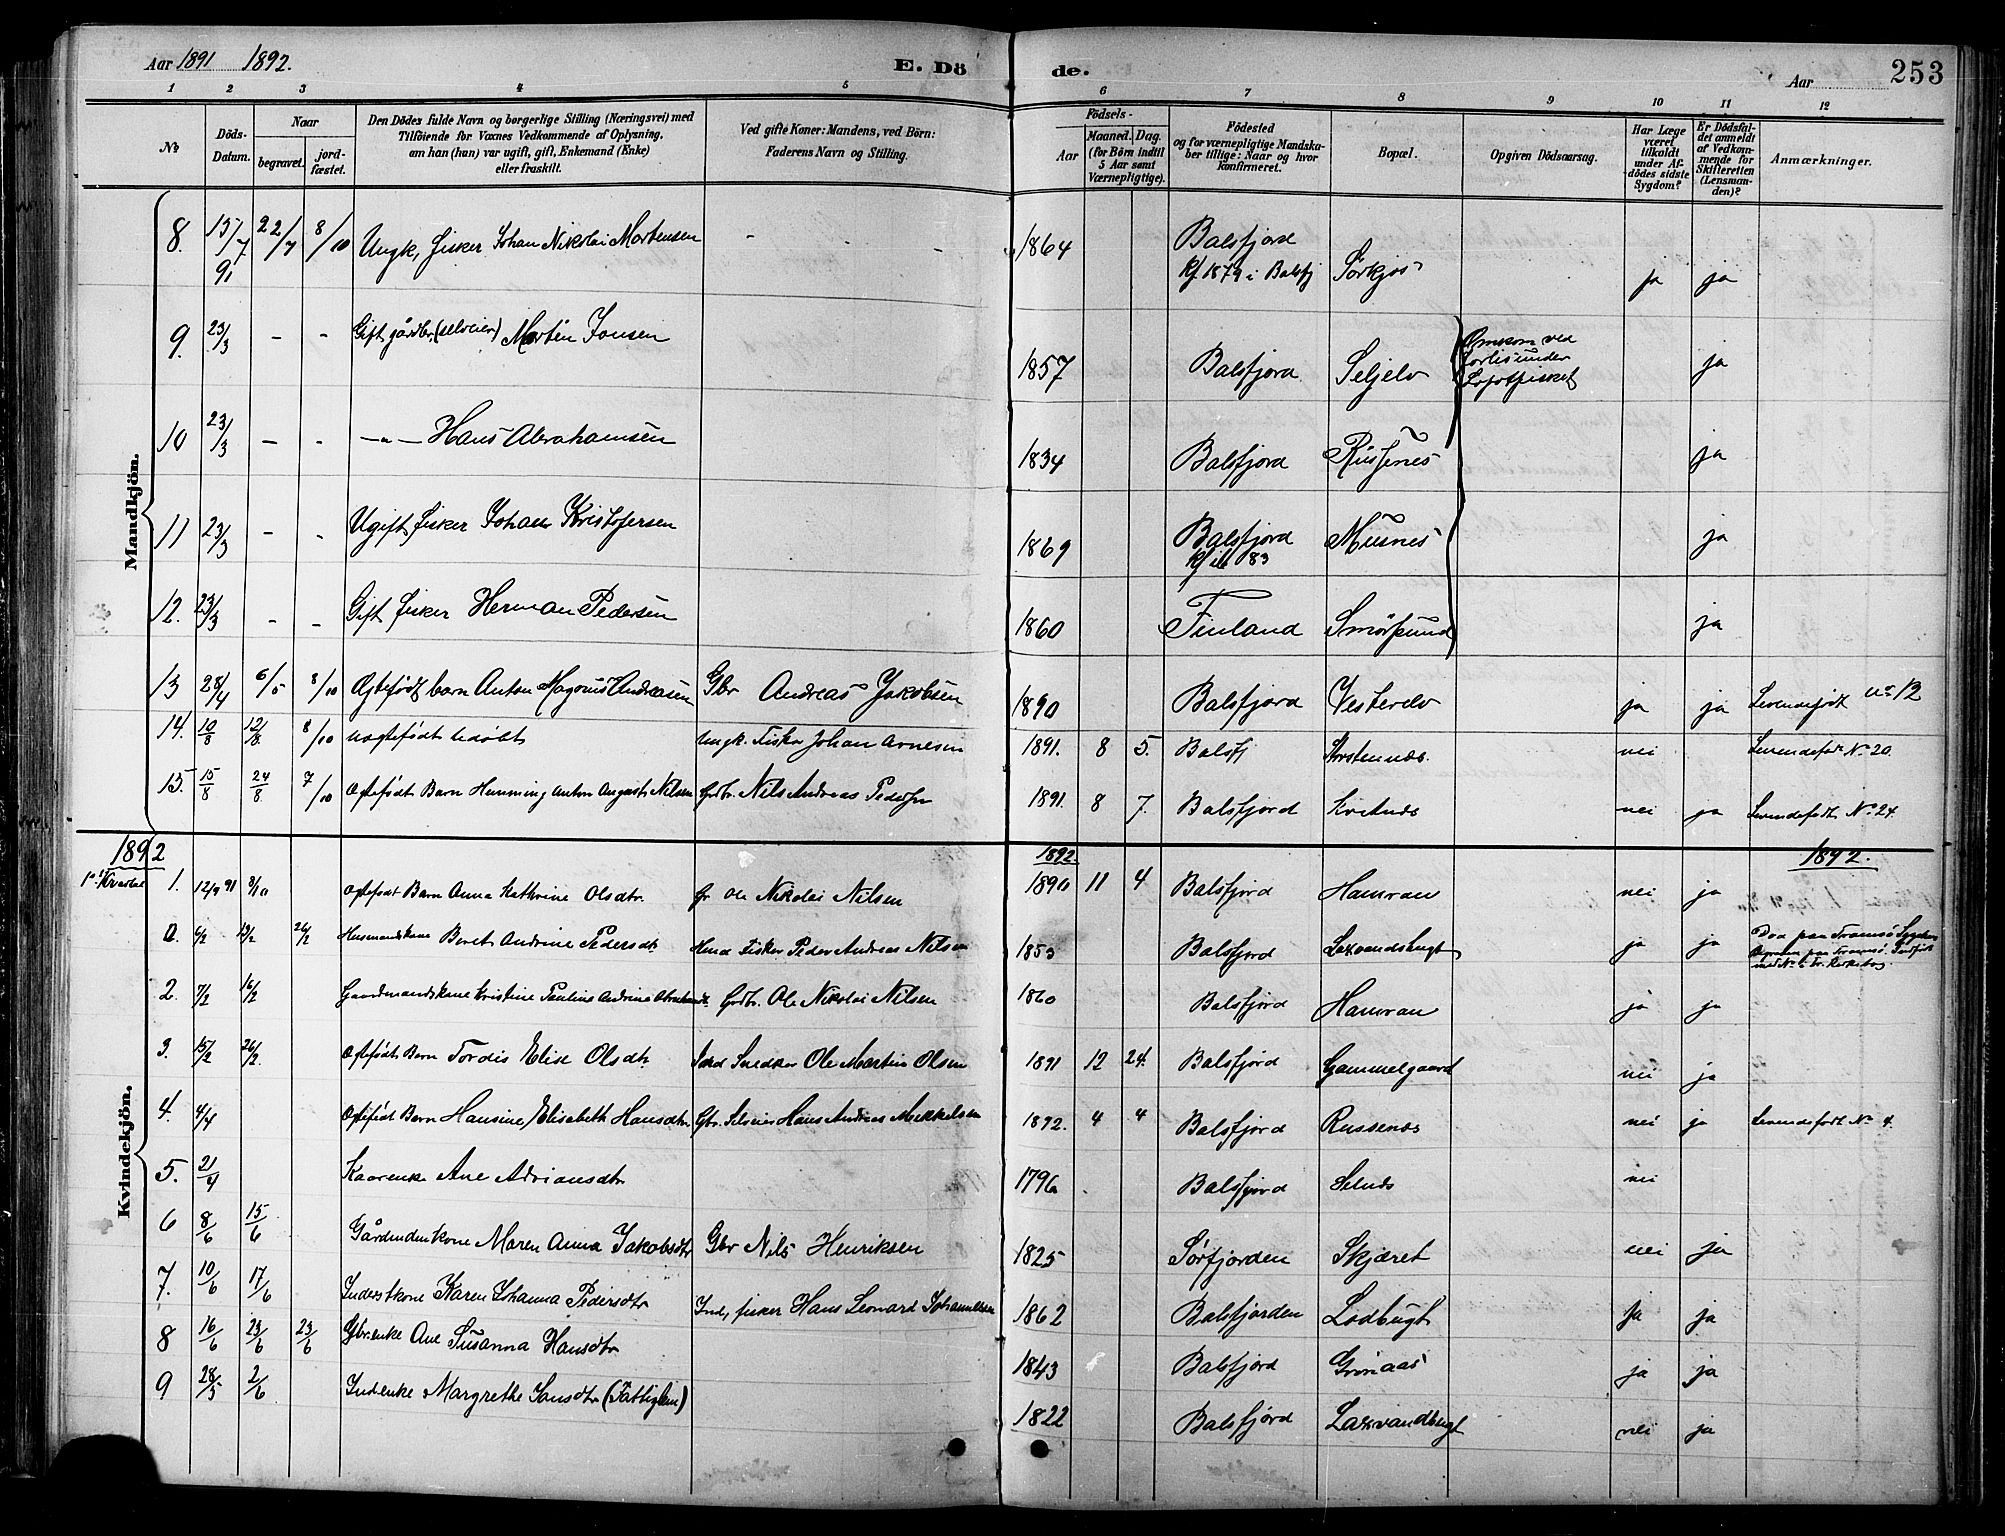 Aar 1891 1892. E. Dö de. Aar 253
1 2 3 4 5 6 7 8 9 10 11 12
№
Döds-Datum.
Naar
begravet.
jord-fæstet.
Den Dödes fulde Navn og borgerlige Stilling (Næringsvei) med
Tilföiende for Voxnes Vedkommende af Oplysning,
om han (hun) var ugift, gift, Enkemand (Enke)
eller fraskilt.
Ved gifte Koner: Mandens, ved Börn:
Faderens Navn og Stilling.
Födsels-
Aar
Maaned. Dag.
(for Börn indtil
5 Aar samt
Værnepligtige).
Födested
og for værnepligtige Mandska-
ber tillige: Naar og hvor
konfirmeret.
Bopæl.
Opgiven Dödsaarsag.
Har Læge
været
tilkaldt
under Af-
dödes sidste
Sygdom?
Er Dödsfal-
det anmeldt
af Vedkom-
mende for
Skifteretten
(Lensman-
den)?
Anmærkninger.
Mandkjön.
8. 15/7 91 22/7 8/10 Ungk, fisker Johan Nikolai Mortensen - 1864 Balsfjord Kf. 1879 i Balsfj Sörkjos ja ja
9. 23/3 - - Gift gårdbr, (selveier) Morten Jonsen 1857 Balsfjord Seljelv Omkom ved forlis under Lofotfisket ja
10 23/3 - - -"- Hans Abrahamsen 1834 Balsfjord Russenes ja
11 23/3 - - Ugift fisker Johan Kristofersen 1869 Balsfjord Kf ib 83 Musnes ja
12. 23/3 - - Gift fisker Herman Pedersen 1860 Finland Smörsund ja
13 28/4 6/5 8/10 Ægtefödt barn Anton Magnus Andreasen Gbr Andreas Jakobsen 1890 Balsfjord Vesterelv ja ja Levendefödt no 12
14. 10/8 12/8 8/10 uægtefödt udöbt Ungk. Fisker Johan Arnesen 1891. 8 5. Balsfj Storstennæs. nei Levendefödt No 20
15. 15/8 24/8 7/10 Ægtefödt Barn Henning Anton August Nilsen Grdbr. Nils Andreas Pedersen 1891. 8 7. Balsfjord Kvitnæs nei ja Levendefödt No 24.
1892 1892. 1892.
Kvindekjön.
1. 12/9 91 3/10 Ægtefödt Barn Anna Kathrine Olsdtr. Gr Ole Nikolai Nilsen 1890 11 4 Balsfjord Hamran nei ja
4/2 13/2 26/2 Husmandskone Beret Andrine Pedersdtr Husmd Fisker Peder Andreas Nilsen 1853 Balsfjord Laxvandsbugt ja ja Död paa Tromsö Sygehus Begraven paa Tromsö
2. 7/2 16/2 Gaardmandskone Kristine Pauline Andrine Abrahamsdt. Grdbr. Ole Nikolai Nilsen 1860 Balsfjord Hamran ja ja
3. 15/2 26/2. Ægtefödt Barn Tordis Elise Olsdtr Snedker Ole Martin Olsen 1891 12 24. Balsfjord Gammelgaard nei ja
4. 4/4 Ægtefödt Barn Hansine Elisabeth Hansdtr Gbr. Selveier Hans Andreas Mikkelsen 1892. 4 4 Balsfjord Russenæs nei ja Levendefödt No 4.
5. 21/4 Kaarenke Ane Adriansdtr 1796 Balsfjord Selnæs nei
6 8/6 15/6 Gårdmandenkone Maren Anna Jakobsdtr Gbr Nils Henriksen 1825 Sörfjorden Skjæret nei ja
7. 10/6 17/6 Inderstkone Karen Johanna Pedersdtr Ind, fisker Hans Leonard Johannesen 1862 Balsfjorden Lodbugt ja ja
8 16/6 23/6 23/6 Gbr.enke Ane Susanna Hansdtr 1843 Balsfjord Grönaas ja ja
9 28/5 2/6 Indenke Margrethe Jonsdtr (Fattiglem) 1822 Balsfjord Laxvandbugt nei ja